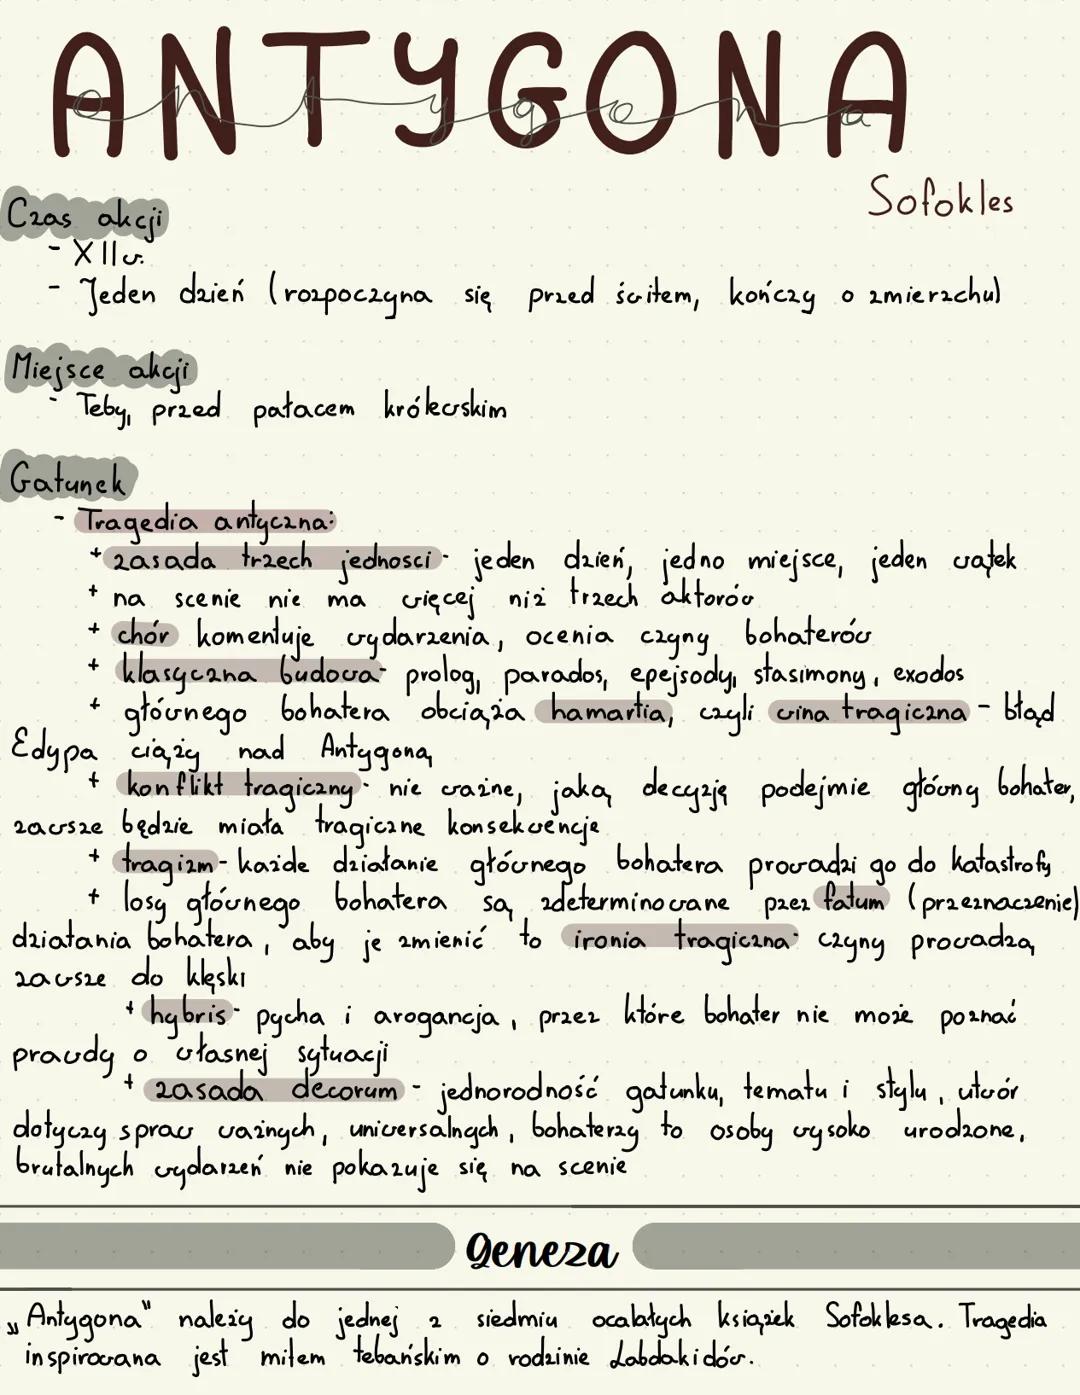 ANTYGONA
antygona
Sofokles
Czas akcji
- XIIw.
- Jeden dzień (rozpoczyna się przed świtem, kończy o zmierzchu)
Miejsce akcji
- Teby, przed pałacem królewskim
Gatunek
- Tragedia antyczna:
+ zasada trzech jedności - jeden dzień, jedno miejsce, jeden wątek
+ na scenie nie ma więcej niż trzech aktorów
+ chór komentuje wydarzenia, ocenia czyny bohaterów
+ klasyczna budowa - prolog, parados, epejsody, stasimony, exodos
+ głównego bohatera obciąża hamartia, czyli wina tragiczna - błąd
Edypa ciąży nad Antygoną
+ konflikt tragiczny - nie ważne, jaką decyzję podejmie główny bohater,
zawsze będzie miała tragiczne konsekwencje
+ tragizm - każde działanie głównego bohatera prowadzi go do katastrofy
+ losy głównego bohatera są zdeterminowane pzez fatum (przeznaczenie)
działania bohatera, aby je zmienić to ironia tragiczna - czyny prowadzą
zawsze do klęski
+ hybris - pycha i arogancja, przez które bohater nie może poznać
prawdy o własnej sytuacji
+ zasada decorum - jednorodność gatunku, tematu i stylu, utwór
dotyczy spraw ważnych, uniwersalnych, bohaterzy to osoby wysoko urodzone,
brutalnych wydarzeń nie pokazuje się na scenie
geneza
„Antygona" należy do jednej z siedmiu ocalałych książek Sofoklesa. Tragedia
inspirowana jest mitem tebańskim o rodzinie Labdakidów.